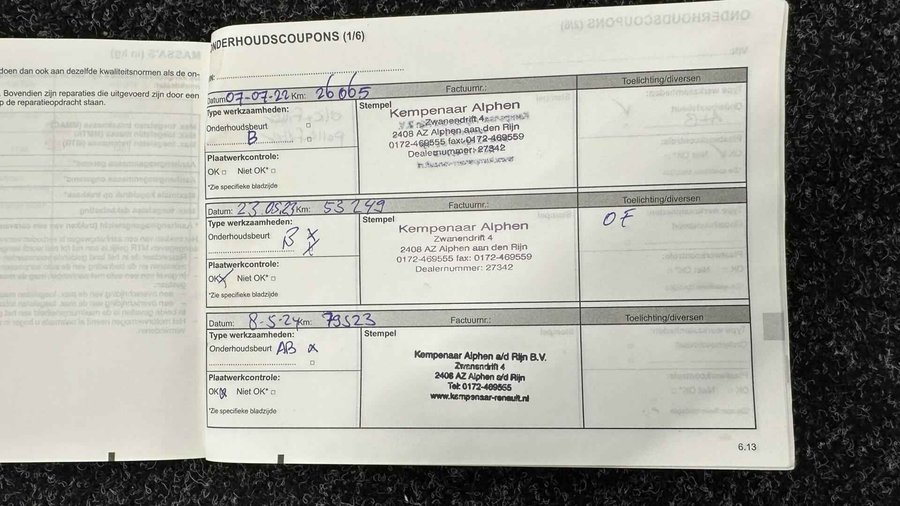 doen dan ook aan dezelfde kwaliteitsnormen als de on-
Bovendien zijn reparaties die uitgevoerd zijn door een
p de reparatieopdracht staan.
ONDERHOUDSCOUPONS (1/6)
Datum: 07-07-22 Km: 26665 Factuurnr.: Toelichting/diversen
Type werkzaamheden:
Onderhoudsbeurt
B
Plaatwerkcontrole:
OK Niet OK*
*Zie specifieke bladzijde
Stempel
Kempenaar Alphen
Zwanendrift 4
2408 AZ Alphen aan den Rijn
0172-469555 fax: 0172-469559
Dealernummer: 27342
Datum: 23.05.23 Km: 53249 Factuurnr.: Toelichting/diversen
Type werkzaamheden:
Onderhoudsbeurt B x
x
Plaatwerkcontrole:
OK x Niet OK*
*Zie specifieke bladzijde
Stempel
Kempenaar Alphen
Zwanendrift 4
2408 AZ Alphen aan den Rijn
0172-469555 fax: 0172-469559
Dealernummer: 27342
OF
Datum: 8-5-24 Km: 79523 Factuurnr.: Toelichting/diversen
Type werkzaamheden:
Onderhoudsbeurt AB x
Plaatwerkcontrole:
OK x Niet OK*
*Zie specifieke bladzijde
Stempel
Kempenaar Alphen a/d Rijn B.V.
Zwanendrift 4
2408 AZ Alphen a/d Rijn
Tel: 0172-469555
www.kempenaar-renault.nl
6.13